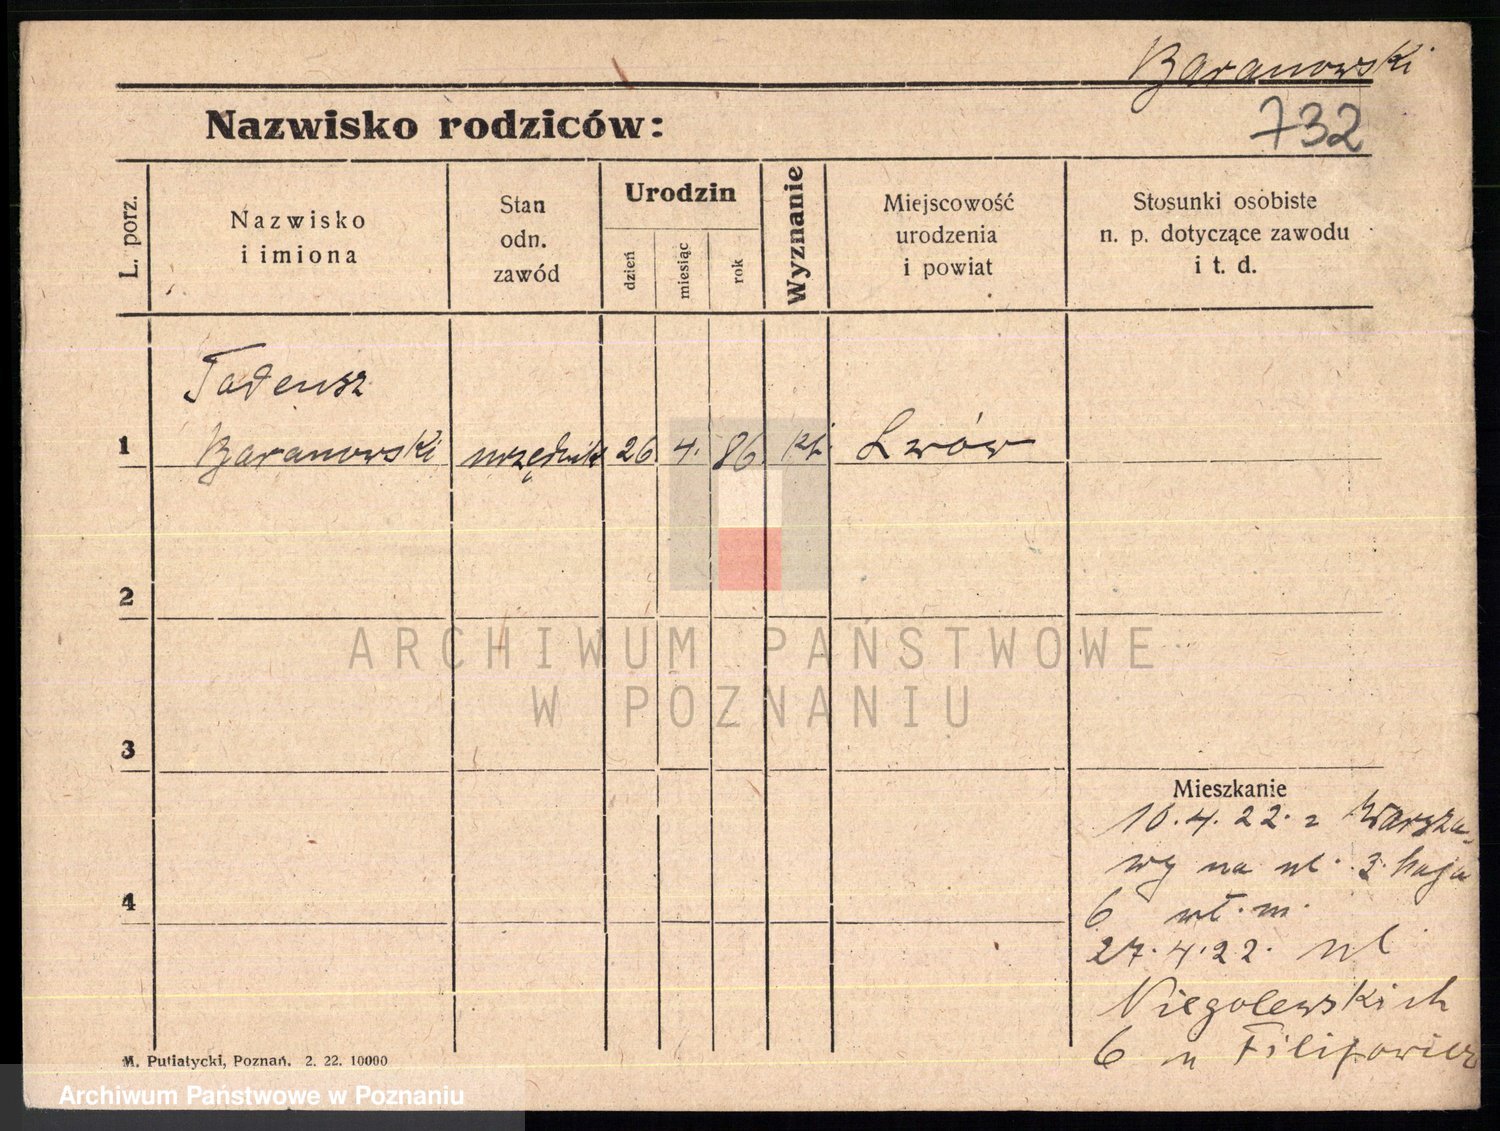 Baranowski
Nazwisko rodziców:
732
L. porz.
Nazwisko
i imiona
Stan
odn.
zawód
Urodzin
dzień
miesiąc
rok
Wyznanie
Miejscowość
urodzenia
i powiat
Stosunki osobiste
n. p. dotyczące zawodu
i t. d.
Tadeusz
1 Baranowski urzędnik 26 4. 86. kt. Lwów
2
ARCHIWUM PAŃSTWOWE
W POZNANIU
3
Mieszkanie
10.4.22. z Warsza-
wy na ul. 3 Maja
4
6 wł. m.
27.4.22. ul
Niegolewskich
6 u Filipowicz
M. Putiatycki, Poznań. 2. 22. 10000
Archiwum Państwowe w Poznaniu